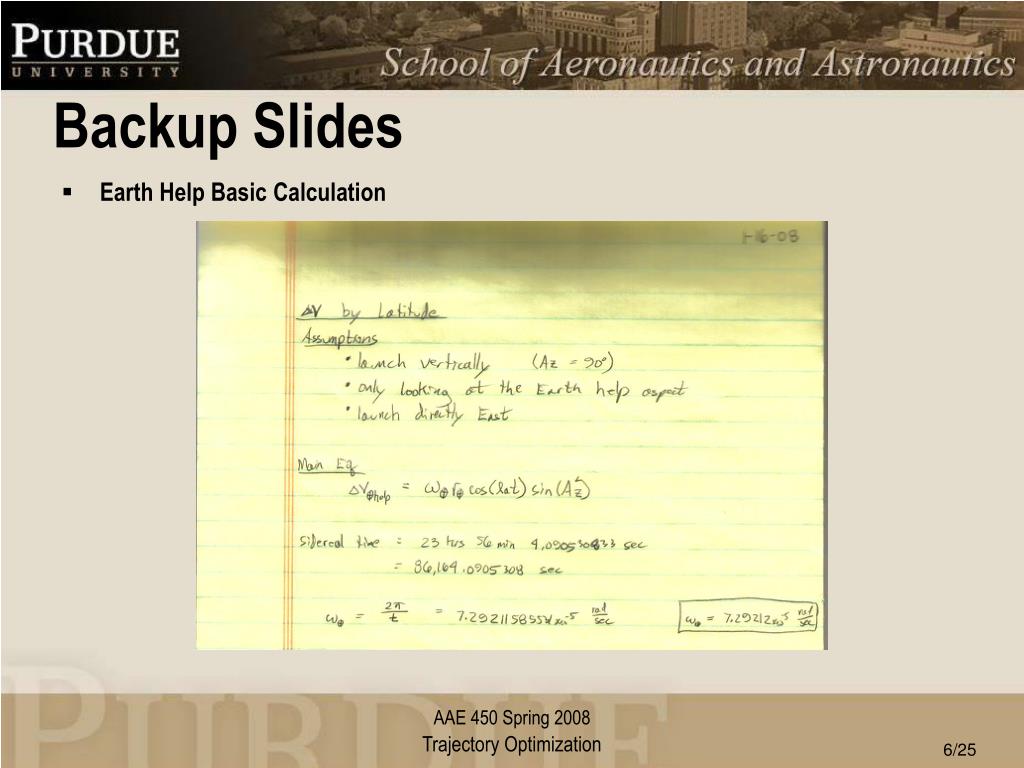 PURDUE
UNIVERSITY
School of Aeronautics and Astronautics
Backup Slides
▪ Earth Help Basic Calculation
1-16-08
ΔV by Latitude
Assumptions
• launch vertically (Az = 90°)
• only looking at the Earth help aspect
• launch directly East
Main Eq
ΔV⊕help = ω⊕ r⊕ cos(lat) sin(Az)
Sidereal time = 23 hrs 56 min sec
= 86,164.0905308 sec
ω⊕ = 2π/t = rad/sec
ω⊕ = 7.29212x10⁻⁵ rad/sec
PURDUE
AAE 450 Spring 2008
Trajectory Optimization
6/25